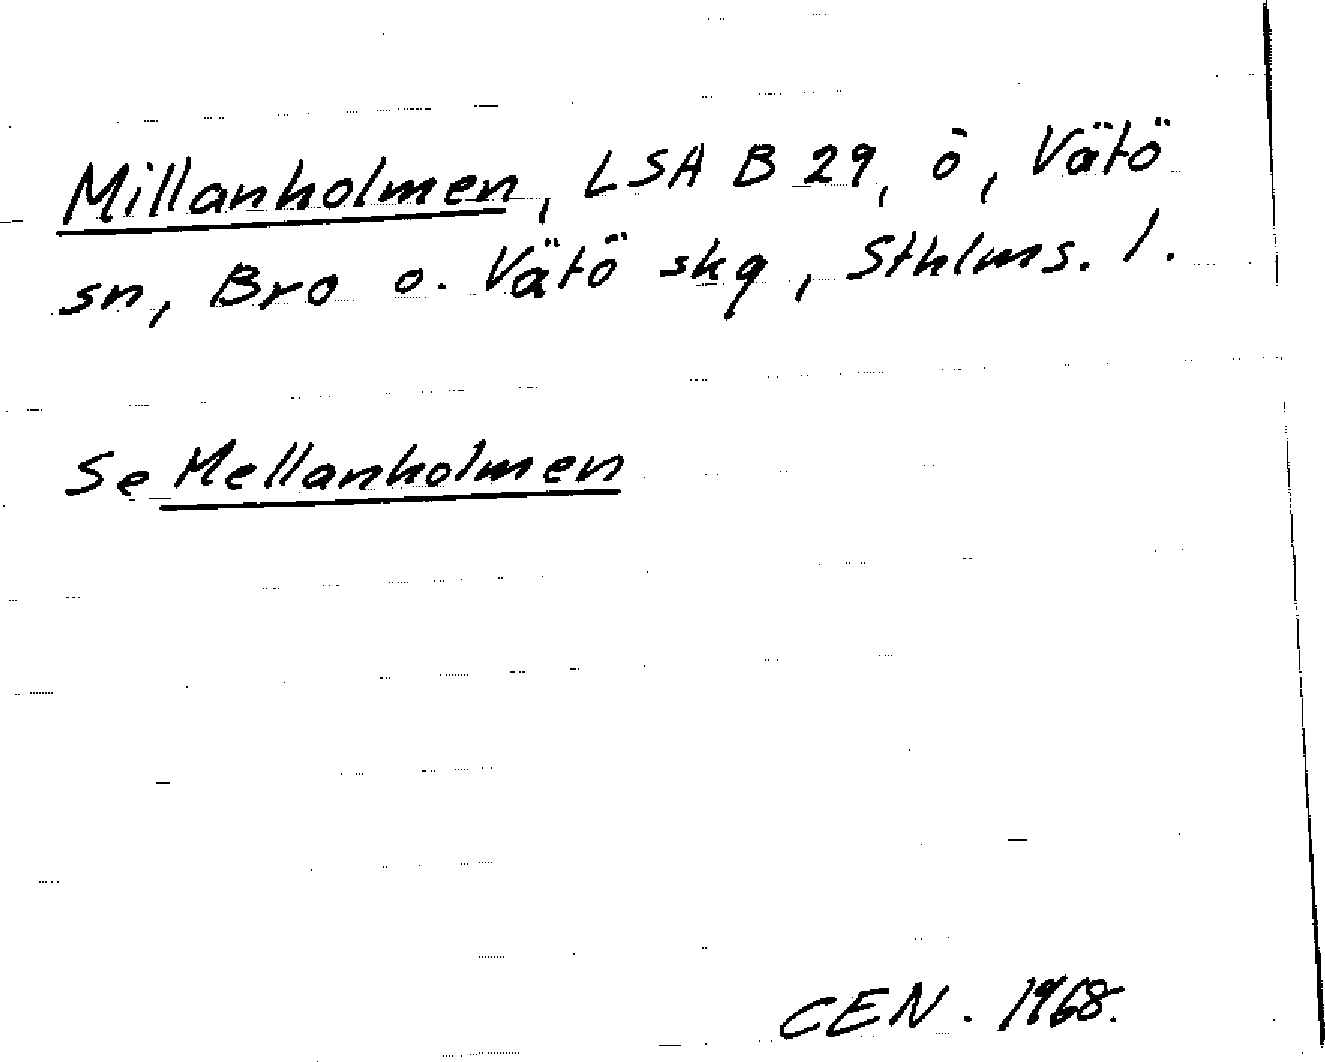 Millanholmen, LSA B 29, ö, Vätö
sn, Bro o. Vätö skg, Sthlms. l.
Se Mellanholmen
CEN. 1968.